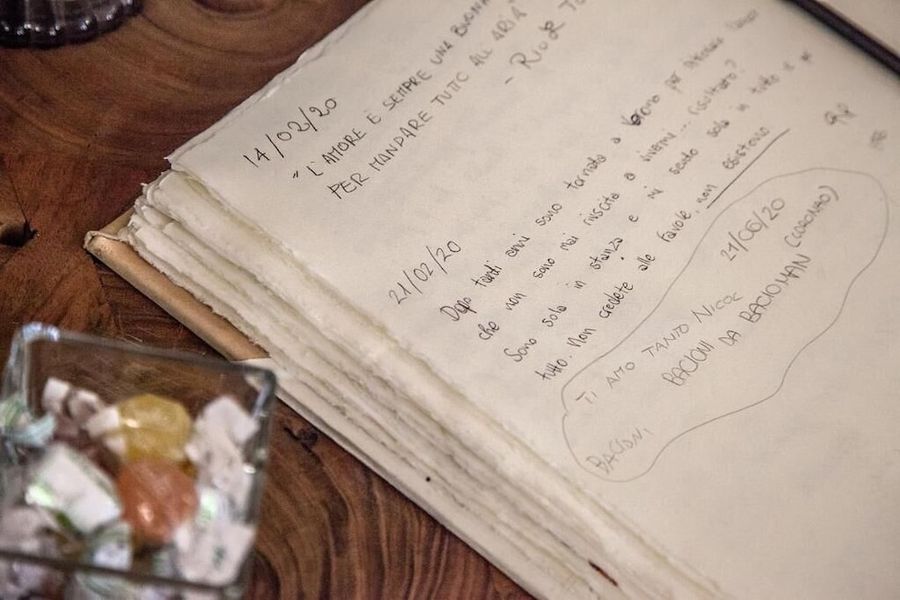 14/02/20
"L'AMORE È SEMPRE UNA BUONA
PER MANDARE TUTTO ALL'ARIA"
21/02/20
Dopo tanti anni sono tornata a per
che non sono mai riuscita a vivermi... risultato?
Sono sola in stanza e mi sento sola in tutto e per
tutto. Non credete alle favole, non esistono
21/06/20
TI AMO TANTO NICOL
BACIONI DA BACIOMAN (CORONAO)
BACIONI